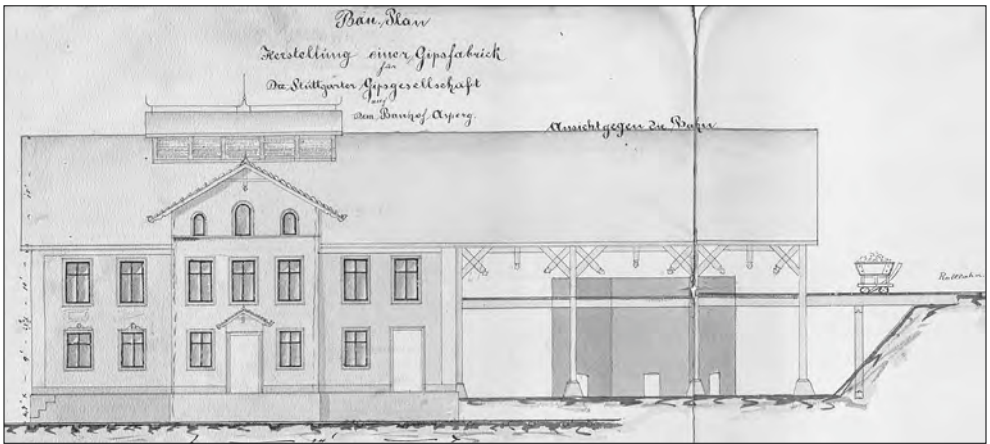 Bau-Plan
Herstellung einer Gipsfabrick
für
Die Stuttgarter Gipsgesellschaft
auf
dem Bahnhof Asperg.
Ansicht gegen die Bahn
Rollbahn